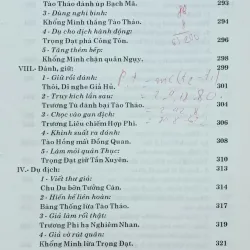 Tào Tháo đánh Bạch Mã. 293
3 - Dùng nghi binh:
Khổng Minh thắng Tào Tháo. 294
4 - Dụ cho địch hành động:
Trọng Đạt phá Công Tôn. 296
5 - Tăng thêm bếp:
Khổng Minh chặn quân Ngụy. 296
VIII.- Đánh, giữ: 299
1 - Giữ rồi đánh:
Thôi, Dĩ nghe Giả Hủ. 301
2 - Truy kích lần sau:
Trương Tú đánh bại Tào Tháo. 304
3 - Chọc vào gan địch:
Trương Liêu chiếm Hợp Phì. 306
4 - Khinh suất ra đánh:
Tào Hồng mất Đồng Quan. 308
5 - Làm mỏi quân Thục:
Trọng Đạt giữ Tần Xuyên. 310
IV.- Dụ địch: 313
1 - Viết thư giả:
Chu Du bỡn Tưởng Cán. 314
2 - Hiến kế liên hoàn:
Bàng Thống lừa Tào Tháo. 317
3 - Giả làm rối thật:
Trương Phi hạ Nghiêm Nhan. 319
4 - Giả cờ rút quân:
Khổng Minh lừa Trọng Đạt. 321